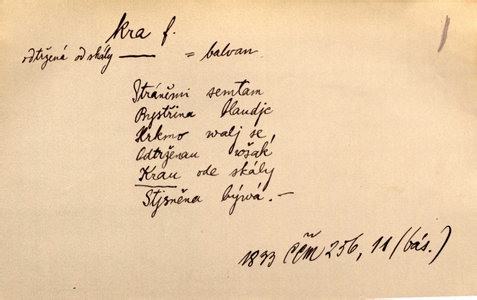 kra f.
odtržená od skály —— = balvan.
Stráněmi semtam
Bystřina bludje
Krkmo walj se,
Odtrženau wšak
Krau ode skály
Stjsněna býwá. —
1833 ČČM 256, 11 (bás.)